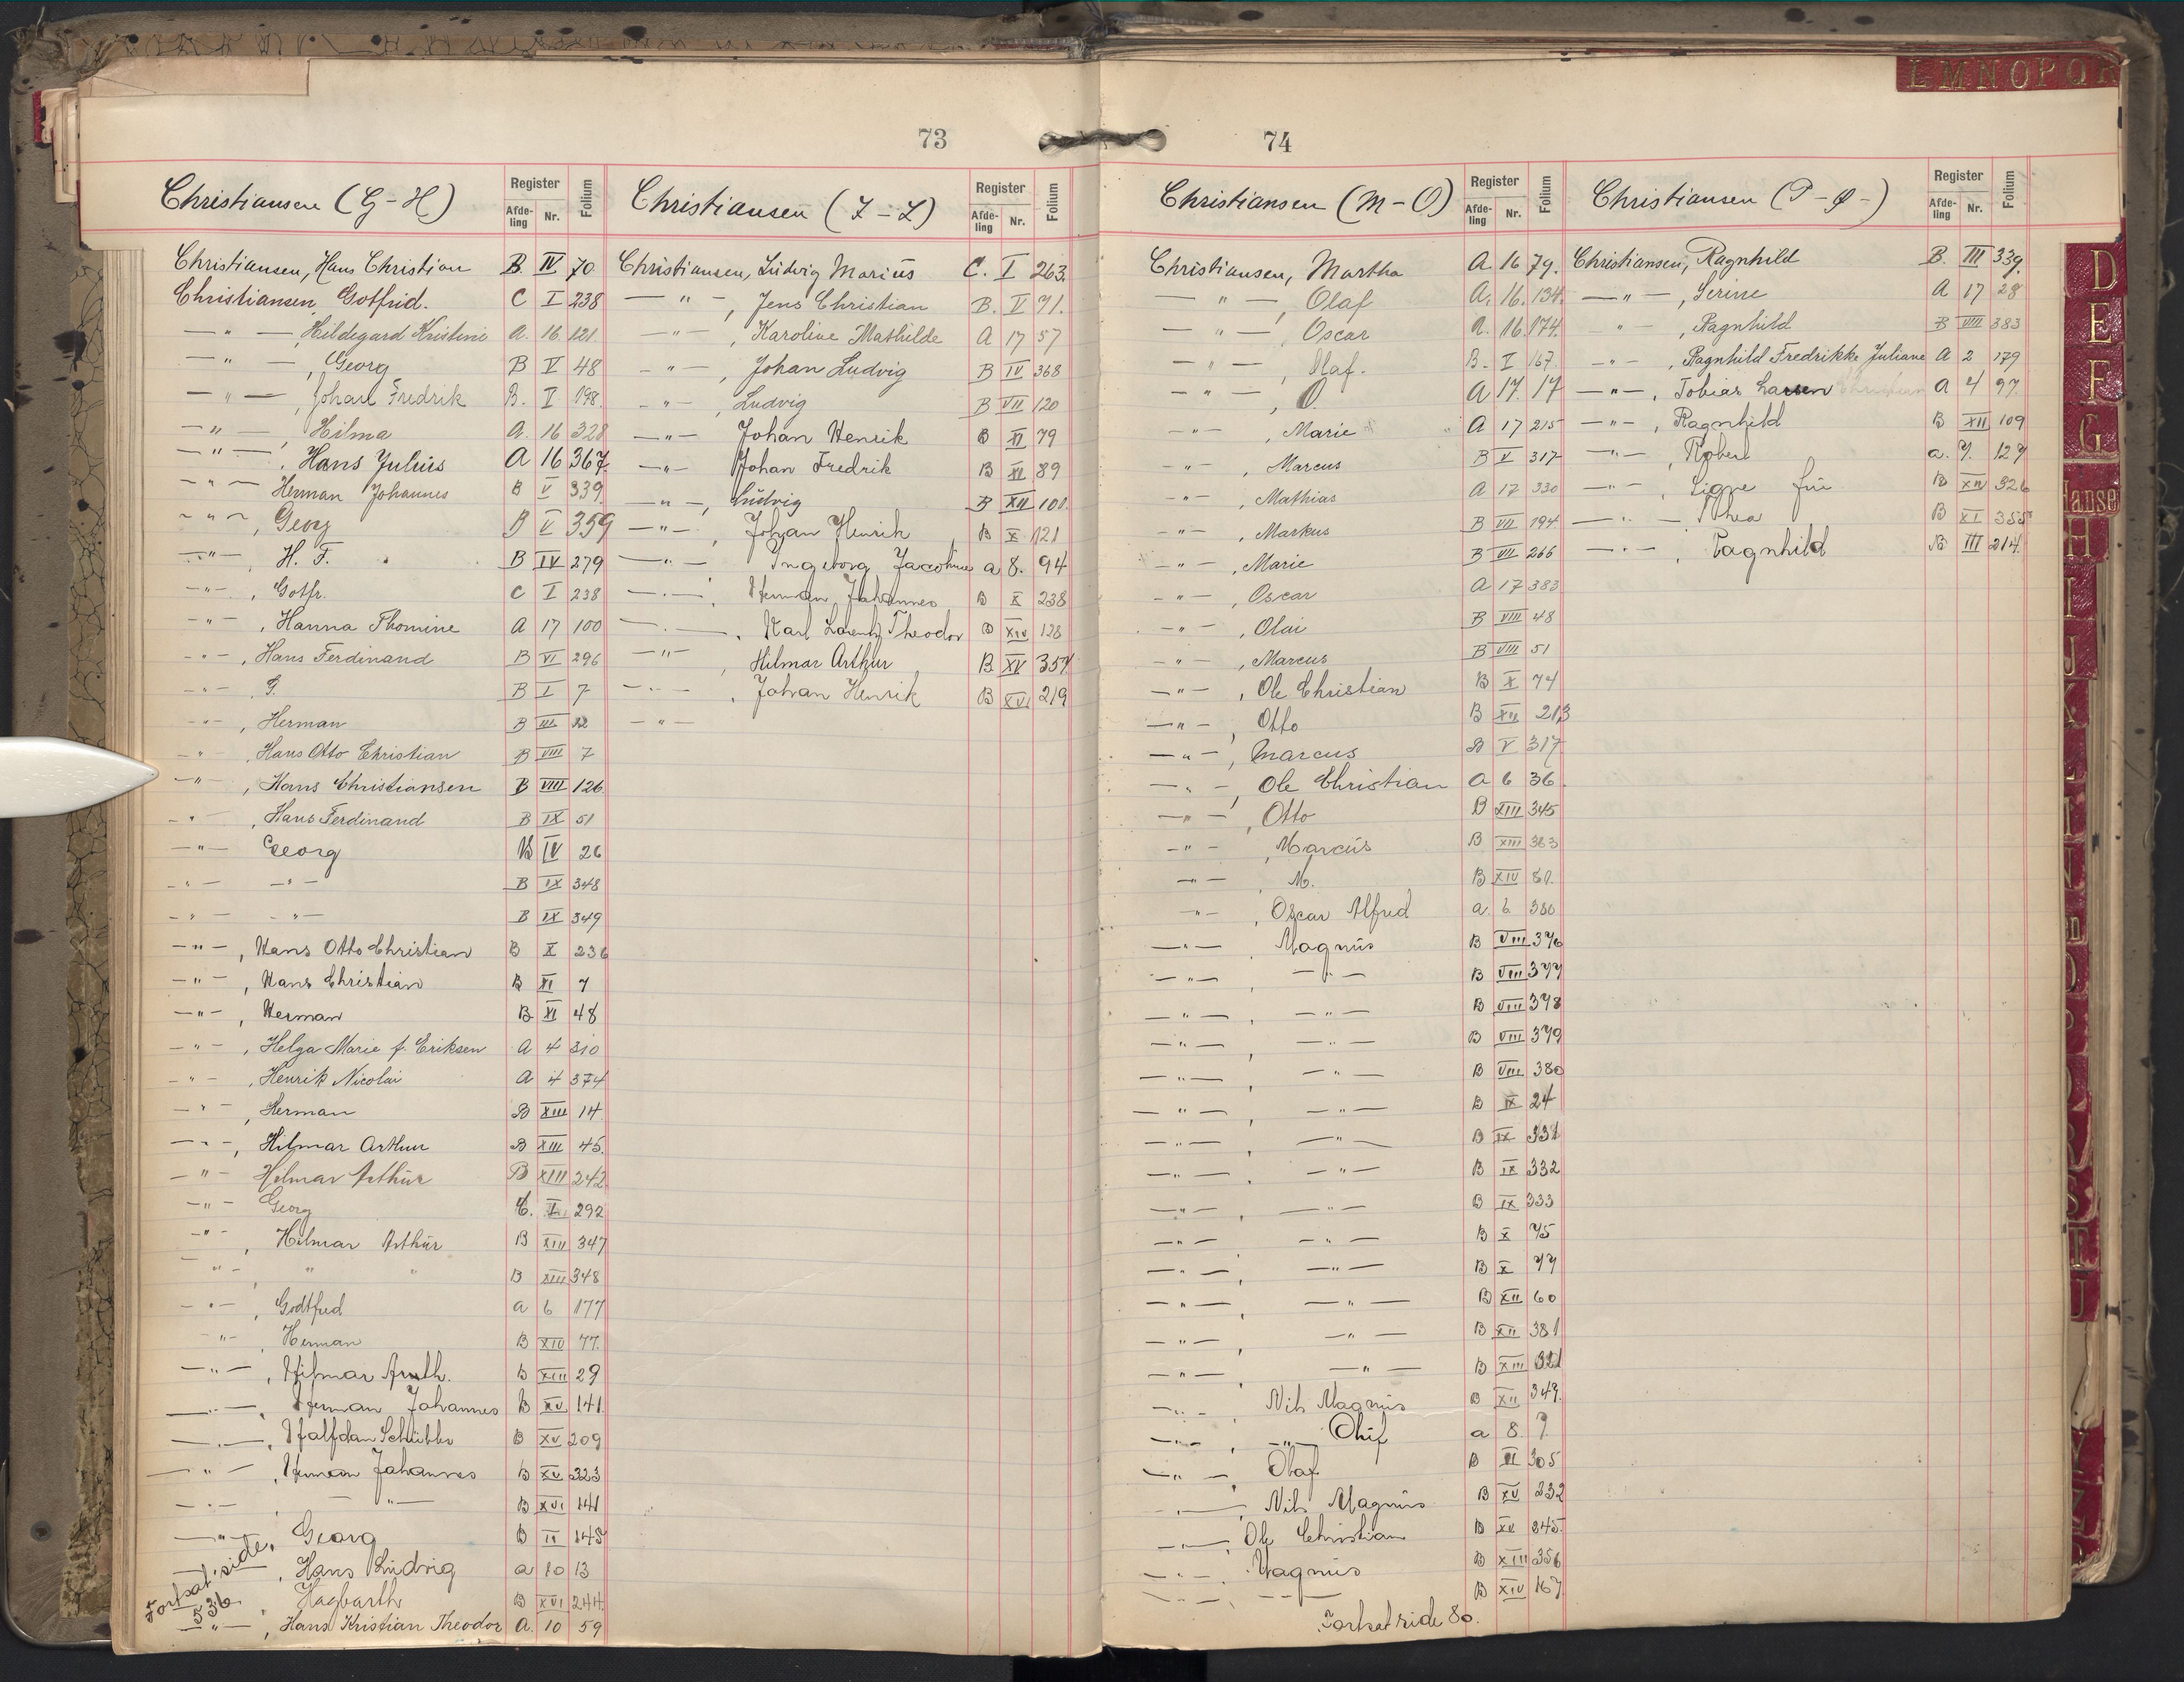 LMNOPQR
73
Christiansen (G-H)
Register
Afde-ling Nr. Folium
Christiansen, Hans Christian B. IV 70
Christiansen, Gotfrid. C I 238
—"—, Hildegard Kristine A. 16. 121.
—"—, Georg B V 48
—"—, Johan Fredrik B. I 198.
—"—, Hilma A. 16 328
—"—, Hans Julius A 16 367.
—"— Herman Johannes B V 339.
—"—, Georg B V 359
—"—, H. F. B IV 279
—"—, Gotfr. C I 238
—"—, Hanna Thomine A 17 100
—"—, Hans Ferdinand B VI 296
—"—, G. B I 7
—"—, Herman B III 22
—"—, Hans Otto Christian B VIII 7
—"—, Hans Christiansen B VIII 126.
—"—, Hans Ferdinand B IX 51
—"— Georg B IV 26
—"— —"— B IX 348
—"— —"— B IX 349
—"—, Hans Otto Christian B X 236
—"—, Hans Christian B XI 7
—"—, Herman B XI 48
—"—, Helga Marie f. Eriksen A 4 310
—"—, Henrik Nicolai A 4 374
—"—, Herman B XIII 14
—"—, Hilmar Arthur B XIII 45.
—"— Hilmar Arthur B XIII 242.
—"— Georg C. I 292
—"—, Hilmar Arthur B XIII 347
—"— " " B XIII 348
—"—, Godtfred a 6 177
—"—, Herman B XIV 77.
—"—, Hilmar Arth. B XIII 29
—"—, Herman Johannes B XV 141.
—"—, Halfdan B XV 209
—"—, Herman Johannes B XV 323
—"—, —"— B XVI 141
—"—, Georg B II 145
—"—, Hans Ludvig a 10 13
—"—, Hagbarth B XVI 244.
—"—, Hans Kristian Theodor A. 10 59
Fortsat side
536.
Christiansen (I-L)
Register
Afde-ling Nr. Folium
Christiansen, Ludvig Marius C. I 263.
—"—, Jens Christian B. V 71.
—"—, Karoline Mathilde A 17 57
—"—, Johan Ludvig B IV 368
—"—, Ludvig B VII 120
—"— Johan Henrik B XI 79
—"— Johan Fredrik B XI 89
—"—, Ludvig B XII 101.
—"—, Johan Henrik B X 121
—"— Ingeborg Jacobine a 8. 94
—"—, Herman Johannes B X 238
—"—, Karl Lorentz Theodor B XIV 128
—"—, Hilmar Arthur B XV 357.
—"—, Johan Henrik B XVI 219
—"—
74
Christiansen (M-O)
Register
Afde-ling Nr. Folium
Christiansen, Martha A. 16 79.
—"—, Olaf A. 16. 134.
—"—, Oscar A. 16. 174.
—"—, Olaf. B. I 167.
—"—, O. A 17. 17
—"—, Marie A 17 215
—"—, Marcus B V 317
—"—, Mathias A 17 330
—"—, Markus B VII 194
—"—, Marie B VII 266
—"—, Oscar A 17 383
—"—, Olai B VIII 48
—"—, Marcus B VIII 51
—"—, Ole Christian B X 74
—"—, Otto B XII 213
—"—, Marcus B V 317
—"—, Ole Christian A 6 36.
—"—, Otto B XIII 345
—"—, Marcus B XIII 363
—"—, M. B XIV 80.
—"—, Oscar Alfred a. 6. 380
—"—, Magnus B VIII 376
—"— —"— B VIII 377
—"—, —"— B VIII 378
—"—, —"— B VIII 379
—"—, —"— B VIII 380
—"—, —"— B IX 24
—"—, —"— B IX 331
—"—, —"— B IX 332
—"—, —"— B IX 333
—"— —"— B X 75
—"—, —"— B X 77
—"—, —"— B XII 60
—"—, —"— B XII 381
—"—, —"— B XIII 321
—"—, Nils Magnus B XII 349.
—"—, —"— a 8. 7
—"—, Olaf B 305
—"—, Nils Magnus B XV 232
—"—, Ole Christian B XV 245.
—"—, Magnus B XIII 356
—"—, —"— B XIV 167.
Fortsat side 80.
Christiansen (P-Ø-)
Register
Afde-ling Nr. Folium
Christiansen, Ragnhild B. III 339.
—"—, Serine A 17 28
—"—, Ragnhild B VIII 383
—"—, Ragnhild Fredrikke Juliane A 2 179
—"—, Tobias Larsen A 4 97.
—"—, Ragnhild B XII 109
—"—, Robert a. 7. 127
—"—, Signe frü B XIV 326
—"— Thea B XI 355
—"—, Ragnhild B III 214.
D
E
F
G
Hanse
H
I
J
K